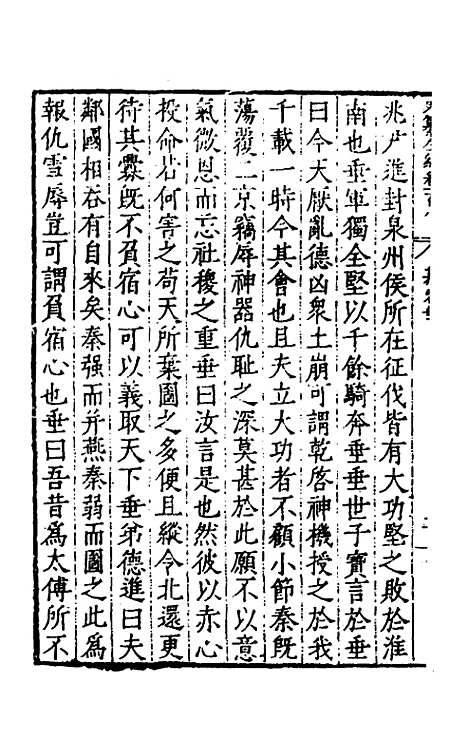 兆尹進封泉州侯所在征伐皆有大功堅之敗於淮
南也垂軍獨全堅以千餘騎奔垂垂世子寶言於垂
曰今天厭亂德凶衆土崩可謂乾啓神機授之於我
千載一時今其會也且夫立大功者不顧小節秦旣
蕩覆二京竊辱神器仇耻之深莫甚於此願不以意
氣微恩而忘社稷之重垂曰汝言是也然彼以赤心
投命若何害之苟天所棄圖之多便且縱令北還更
待其釁旣不負宿心可以義取天下垂弟德進曰夫
鄰國相吞有自來矣秦强而并燕秦弱而圖之此爲
報仇雪辱豈可謂負宿心也垂曰吾昔爲太傅所不